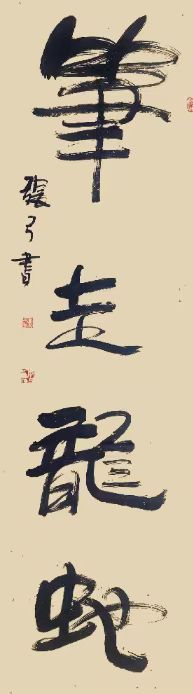 筆走龍蛇
張弓書